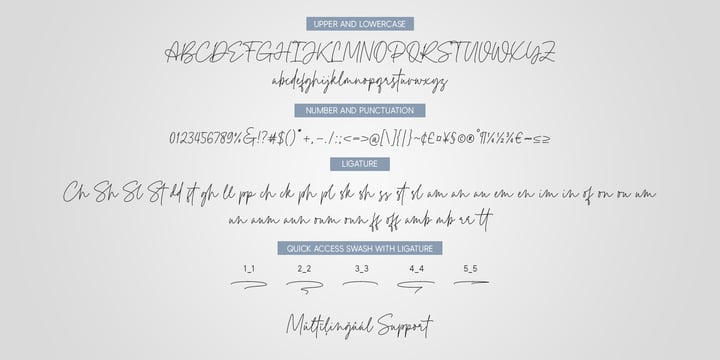 UPPER AND LOWERCASE
ABCDEFGHIJKLMNOPQRSTUVWXYZ
abcdefghijklmnopqrstuvwxyz
NUMBER AND PUNCTUATION
0123456789%&!?#$()*+,-./:;<=>@[\]{|}~¢£¤¥§©®°¶¼½¾€–≤≥
LIGATURE
Ch Sh Sl St dd st gh ll pp ch ck ph pl sk sh ss st sl am an au em en im in of on ou um
un aum aun oum oun ff off amb mb rr tt
QUICK ACCESS SWASH WITH LIGATURE
1_1 2_2 3_3 4_4 5_5